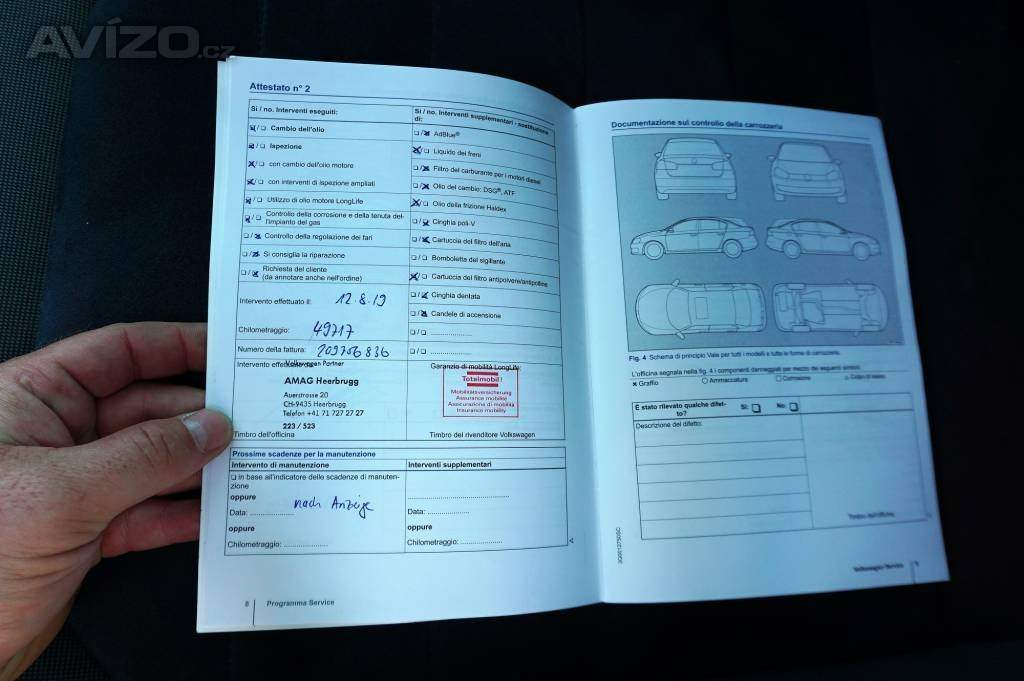 AVÍZO.cz
Attestato n° 2
Sì / no. Interventi eseguiti:
☒/☐ Cambio dell'olio
☒/☐ Ispezione
☒/☐ con cambio dell'olio motore
☒/☐ con interventi di ispezione ampliati
☒/☐ Utilizzo di olio motore LongLife
☒/☐ Controllo della corrosione e della tenuta del-
l'impianto del gas
☐/☒ Controllo della regolazione dei fari
☐/☒ Si consiglia la riparazione
☐/☒ Richiesta del cliente
(da annotare anche nell'ordine)
Intervento effettuato il: 12.8.19
Chilometraggio: 49717
Numero della fattura: 209706836
Intervento effettuato da
Volkswagen Partner
AMAG Heerbrugg
Auerstrasse 20
CH-9435 Heerbrugg
Telefon +41 71 727 27 27
223 / 523
Timbro dell'officina
Sì / no. Interventi supplementari - sostituzione
di:
☐/☒ AdBlue®
☒/☐ Liquido dei freni
☐/☒ Filtro del carburante per i motori diesel
☐/☒ Olio del cambio: DSG®, ATF
☒/☐ Olio della frizione Haldex
☐/☒ Cinghia poli-V
☐/☒ Cartuccia del filtro dell'aria
☐/☐ Bomboletta del sigillante
☒/☐ Cartuccia del filtro antipolvere/antipolline
☐/☒ Cinghia dentata
☐/☒ Candele di accensione
☐/☐ ....................
☐/☐ ....................
Garanzio di mobilità LongLife:
Totalmobil!
Mobilitätsversicherung
Assurance mobilité
Assicurazione di mobilità
Insurance mobility
Timbro del rivenditore Volkswagen
Prossime scadenze per la manutenzione
Intervento di manutenzione
☐ in base all'indicatore delle scadenze di manuten-
zione
oppure
Data: .................... nach Anzeige
oppure
Chilometraggio: ....................
Interventi supplementari
....................
Data: ....................
oppure
Chilometraggio: ....................
8 Programma Service
Documentazione sul controllo della carrozzeria
Fig. 4 Schema di principio Vale per tutti i modelli e tutte le forme di carrozzeria.
L'officina segnala nella fig. 4 i componenti danneggiati per mezzo dei seguenti simboli:
x Graffio ☐ Ammaccatura ☐ Corrosione
È stato rilevato qualche difet-
to?
Sì: ☐ No: ☐
Descrizione del difetto:
Timbro dell'officina
3Q0012750SC
Volkswagen Service 9